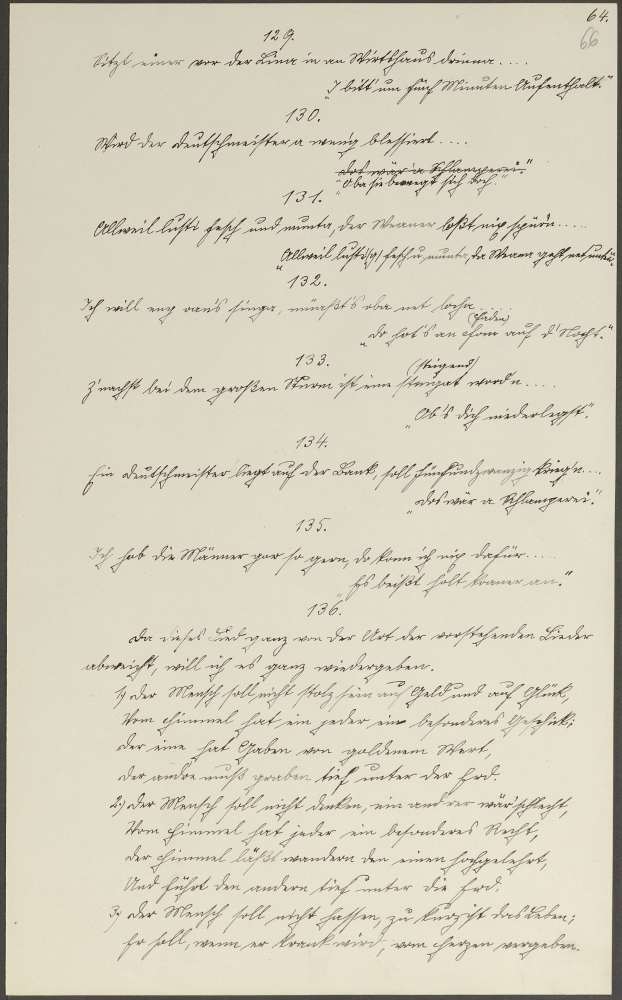 64.
66
129.
Sitzt einer vor der Lina in an Wirtshaus drinna....
"I bitt um fünf Minuten Aufenthalt."
130.
Wird der Deutschmeister a wenig blessiert....
"Dos wär a Schlamperei."
"Oba sie bewegt sich doch."
131.
Allweil lusti fesch und munta, der Weaner loßt nix spüren.....
"Allweil lusti(g) fesch u. munta, da Weana geht net unta".
132.
Ich will eng oans singa, müaßt's oba net locha.....
"Do hot's an
auf d' Nocht."
133.
(steigend)
Z'nachst bei dem großen Sturm ist eine steigat word'n....
"Ob's dich niederlegst".
134.
Ein Deutschmeister liegt auf der Bank, soll Fünfundzwanzig krieg'n...
"Dos wär a Schlamperei."
135.
Ich hab die Männer gar so gern, do konn ich nix dafür.....
"Es beißt holt koaner an."
136.
Da dieses Lied ganz von der Art der vorstehenden Lieder
abweicht, will ich es ganz wiedergeben.
1.) Der Mensch soll nicht stolz sein auf Geld und auf Glück,
Vom Himmel hat ein jeder ein besonderes Geschick;
Der eine hat Gaben von goldenem Wert,
Der andre muß graben tief unter der Erd.
2.) Der Mensch soll nicht denken, ein andrer wär' schlecht,
Vom Himmel hat jeder ein besonderes Recht,
Der Himmel läßt wandern den einen hochgelehrt,
Und führt den andern tief unter die Erd.
3.) Der Mensch soll nicht hassen, zu kurz ist das Leben;
Er soll, wenn er krank wird, vom Herzen vergeben.